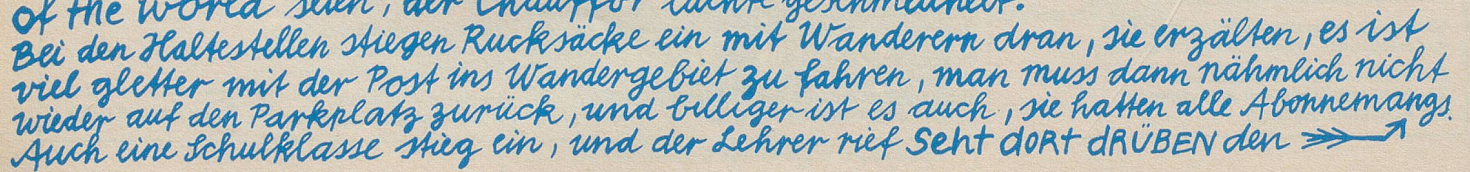 of the World seien, der Chaufför lachte geschmeichelt.
Bei den Haltestellen stiegen Rucksäcke ein mit Wanderern dran, sie erzälten, es ist
viel gletter mit der Post ins Wandergebiet zu fahren, man muss dann nähmlich nicht
wieder auf den Parkplatz zurück, und billiger ist es auch, sie hatten alle Abonnemangs.
Auch eine Schulklasse stieg ein, und der Lehrer rief Seht dORt dRÜBEN den